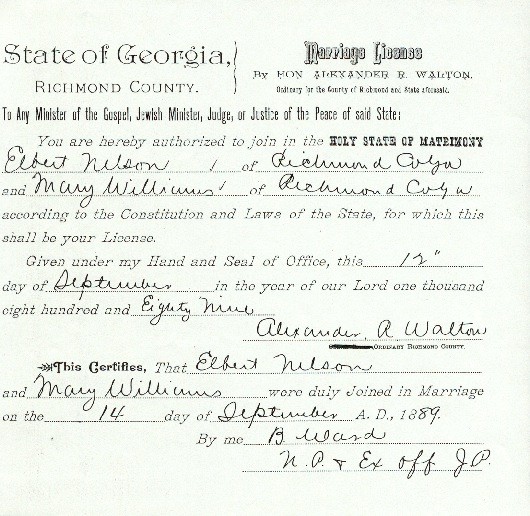 State of Georgia,
Richmond County.
Marriage License
By HON ALEXANDER R. WALTON.
Ordinary for the County of Richmond and State aforesaid.
To Any Minister of the Gospel, Jewish Minister, Judge, or Justice of the Peace of said State:
You are hereby authorized to join in the HOLY STATE OF MATRIMONY
Elbert Nelson of Richmond Co Ga
and Mary Williams of Richmond Co Ga
according to the Constitution and Laws of the State, for which this
shall be your License.
Given under my Hand and Seal of Office, this 12"
day of September in the year of our Lord one thousand
eight hundred and Eighty Nine
Alexander R Walton
ORDINARY RICHMOND COUNTY.
This Certifies, That Elbert Nelson
and Mary Williams were duly Joined in Marriage
on the 14 day of September A. D., 1889.
By me B Ward
N. P. & Ex off J.P.